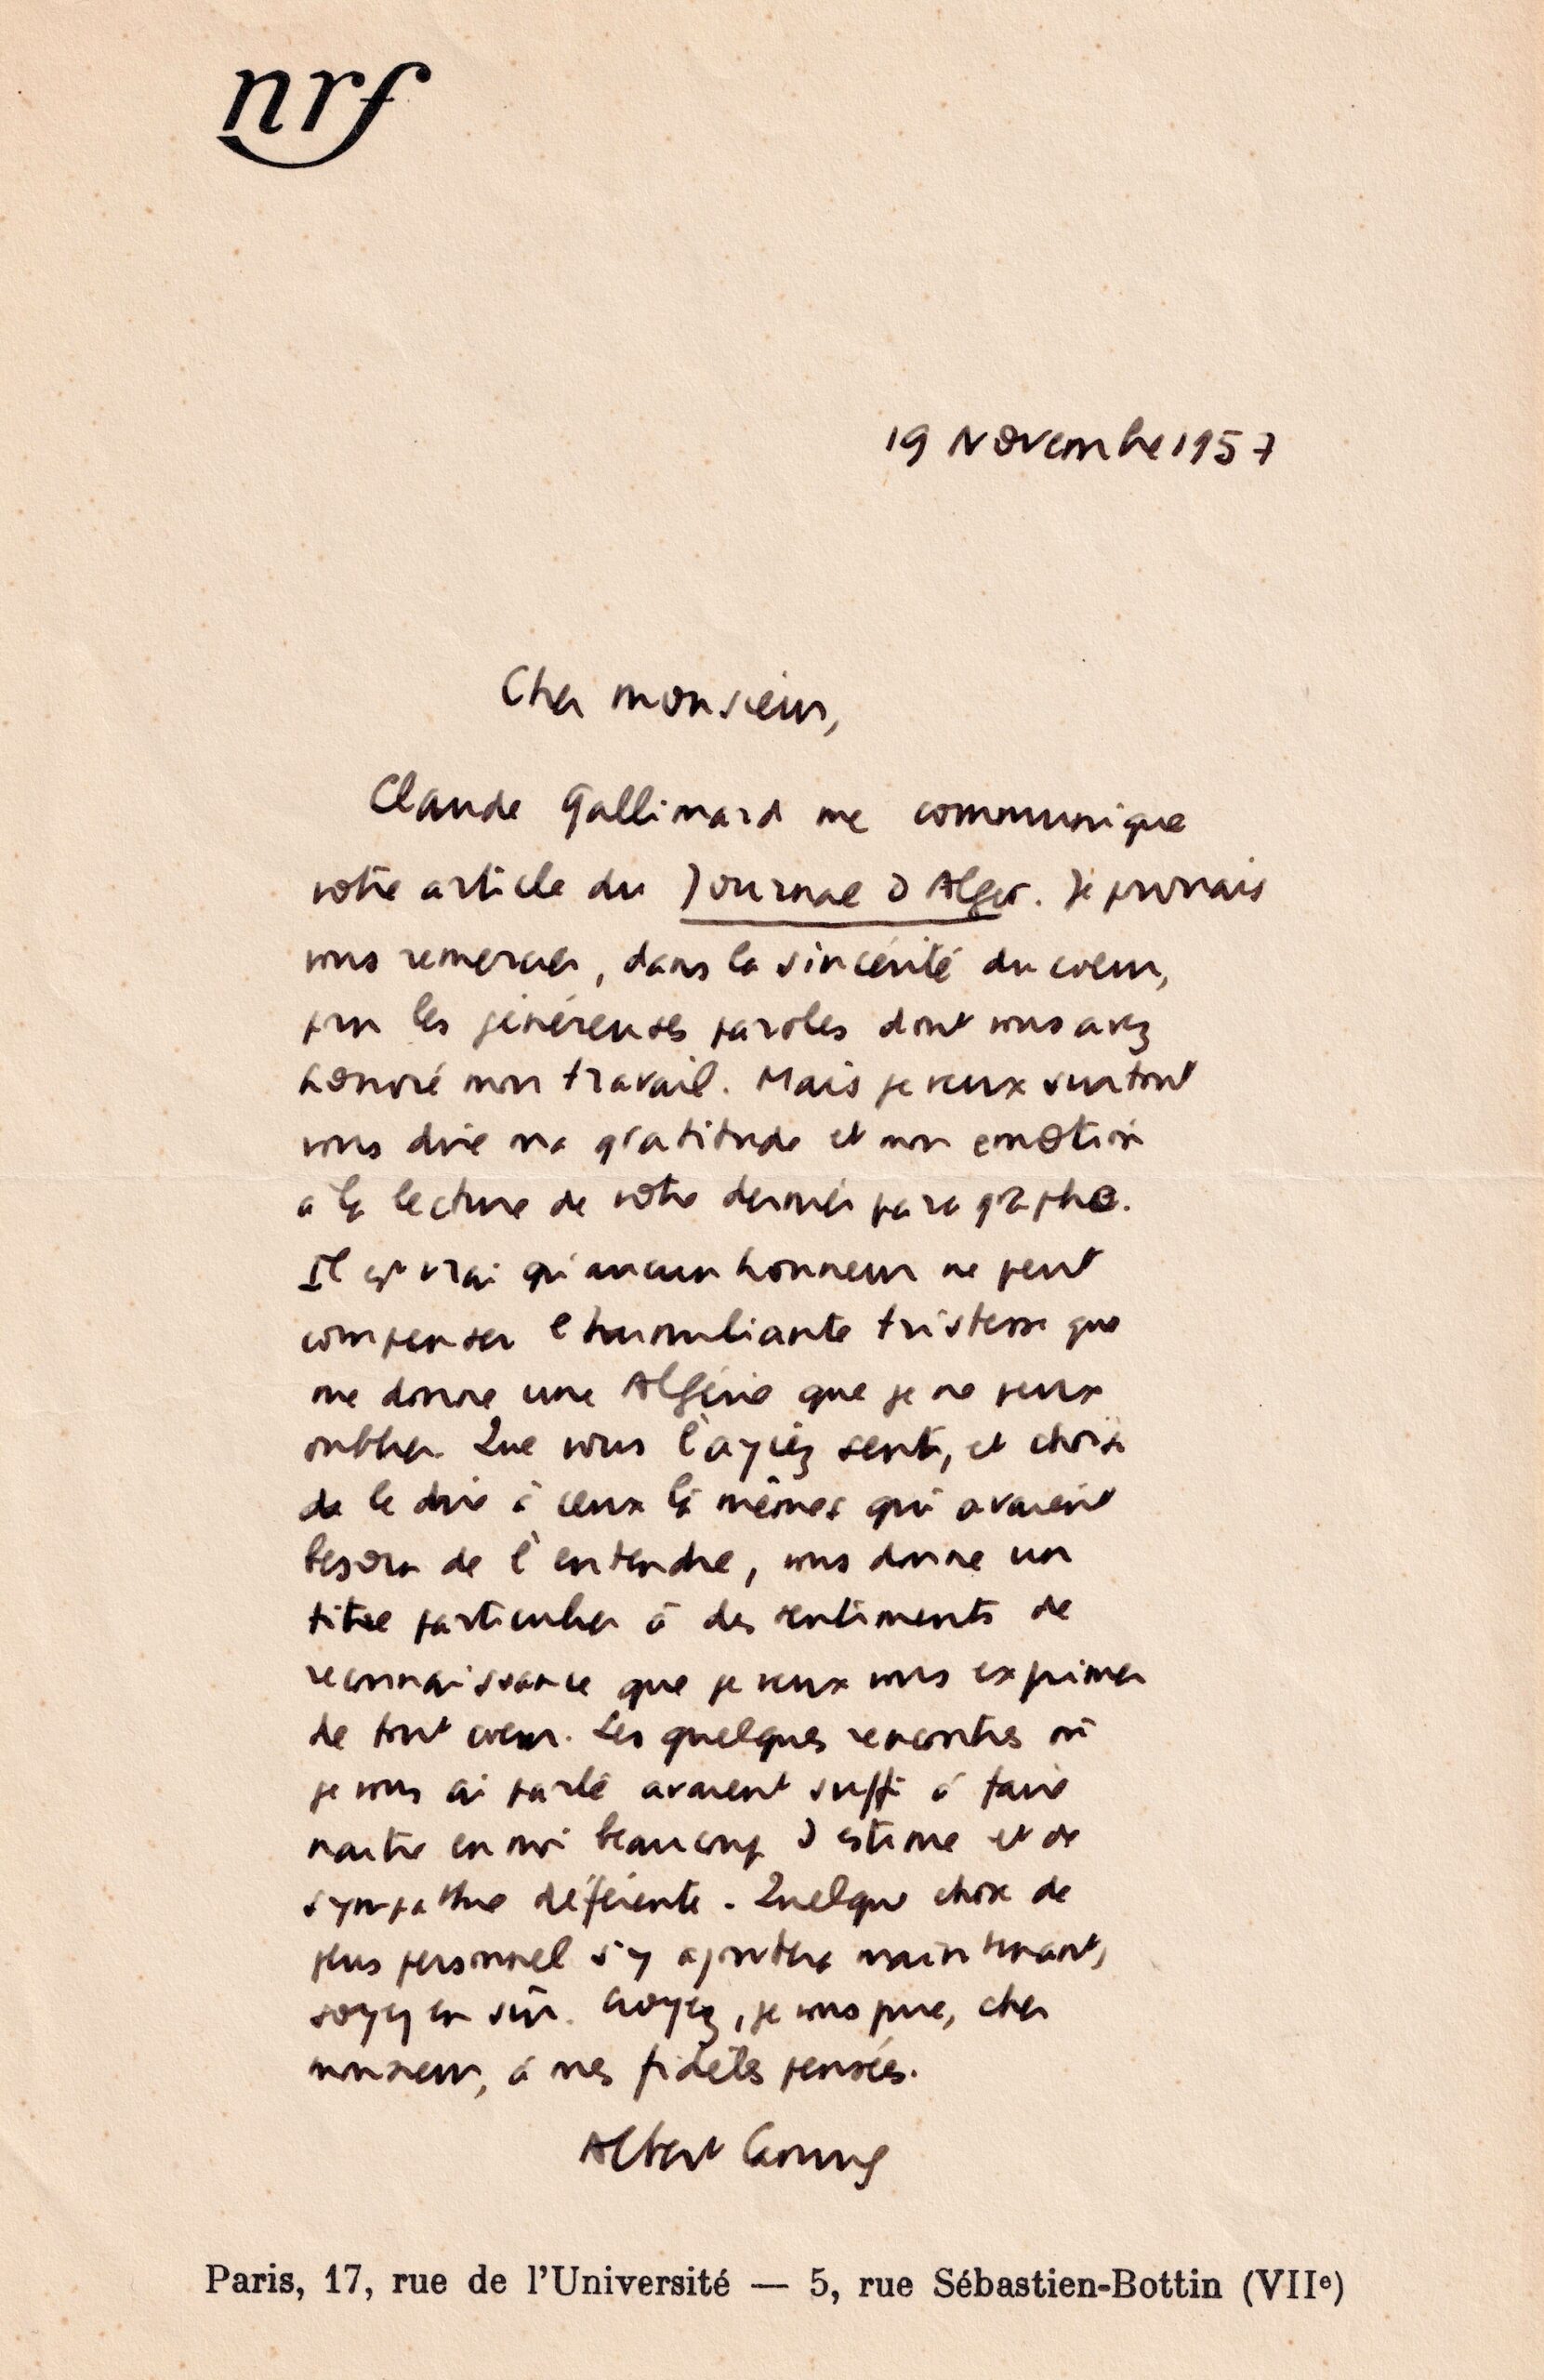 nrf
19 Novembre 1957
Cher monsieur,
Claude Gallimard me communique
votre article du Journal d'Alger. Je pourrais
vous remercier, dans la sincérité du coeur,
pour les généreuses paroles dont vous avez
honoré mon travail. Mais je veux surtout
vous dire ma gratitude et mon émotion
à la lecture de votre dernier paragraphe.
Il est vrai qu'aucun honneur ne peut
compenser l'humiliante tristesse que
me donne une Algérie que je ne peux
oublier. Que vous l'ayiez senti, et choisi
de le dire à ceux là mêmes qui avaient
besoin de l'entendre, vous donne un
titre particulier à des sentiments de
reconnaissance que je veux vous exprimer
de tout coeur. Les quelques rencontres où
je vous ai parlé avaient suffi à faire
naitre en moi beaucoup d'estime et de
sympathie déférente. Quelque chose de
plus personnel s'y ajoutera maintenant,
soyez en sûr. Croyez, je vous prie, cher
monsieur, à mes fidèles pensées.
Albert Camus
Paris, 17, rue de l'Université — 5, rue Sébastien-Bottin (VIIe)